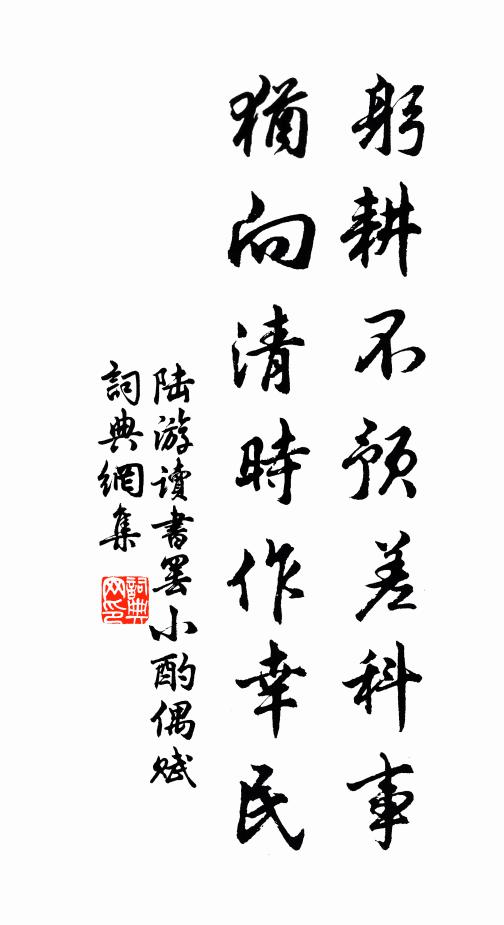 躬耕不預差科事
猶向清時作幸民
陸游讀書罷小酌偶賦
詞典網集
詞典網印